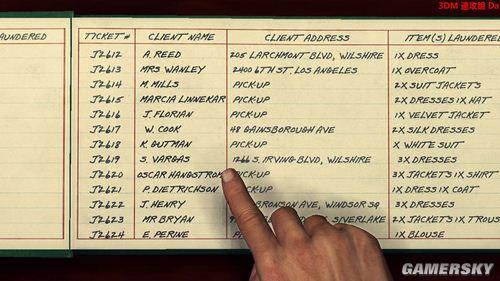 3DM 速攻組 Da
AUNDERED TICKET# CLIENT NAME CLIENT ADDRESS ITEM(S) LAUNDERE
J2612 A. REED 205 LARCHMONT BLVD, WILSHIRE 1X DRESS
J2613 MRS WANLEY 2400 6TH ST. LOS ANGELES 1X OVERCOAT
J2614 M. MILLS PICK-UP 2X SUIT JACKETS
J2615 MARCIA LINNEKAR PICK-UP 2X DRESSES 1X HAT
J2616 J. FLORIAN PICK-UP 1X VELVET JACKET
J2617 W. COOK 48 GAINSBOROUGH AVE 2X SILK DRESSES
J2618 K. GUTMAN PICK-UP X WHITE SUIT
J2619 S. VARGAS 1266 S. IRVING BLVD, WILSHIRE 3X DRESSES
J2620 OSCAR HANGSTROM PICK-UP 3X JACKETS 1X SHIRT
J2621 P. DIETRICHSON CK-UP 1X DRESS 1X COAT
J2622 J. HENRY BRONSON AVE, WINDSOR SQ 3X DRESSES
J2623 MR BRYAN 9 S/VERLAKE 2X JACKETS 1X TROUS
J2624 E. PERINE 1X BLOUSE
GAMERSKY